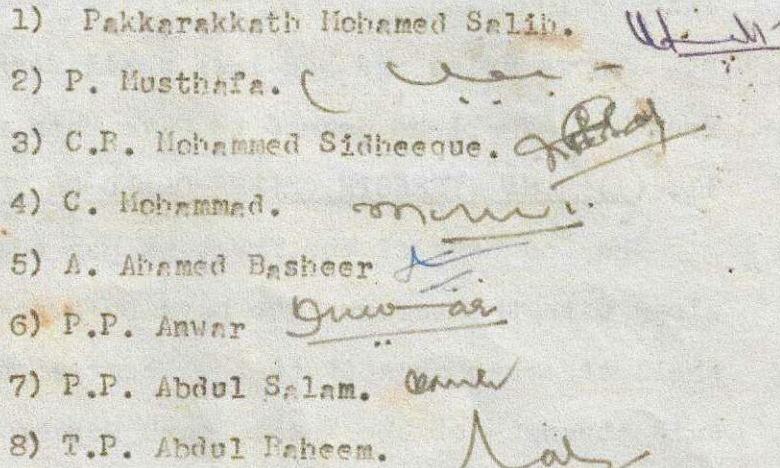 1) Pakkarakkath Mohamed Salih.
2) P. Musthafa.
3) C.R. Mohammed Sidheeque.
4) C. Mohammad.
5) A. Ahamed Basheer
6) P.P. Anwar Anwar
7) P.P. Abdul Salam.
8) T.P. Abdul Raheem.